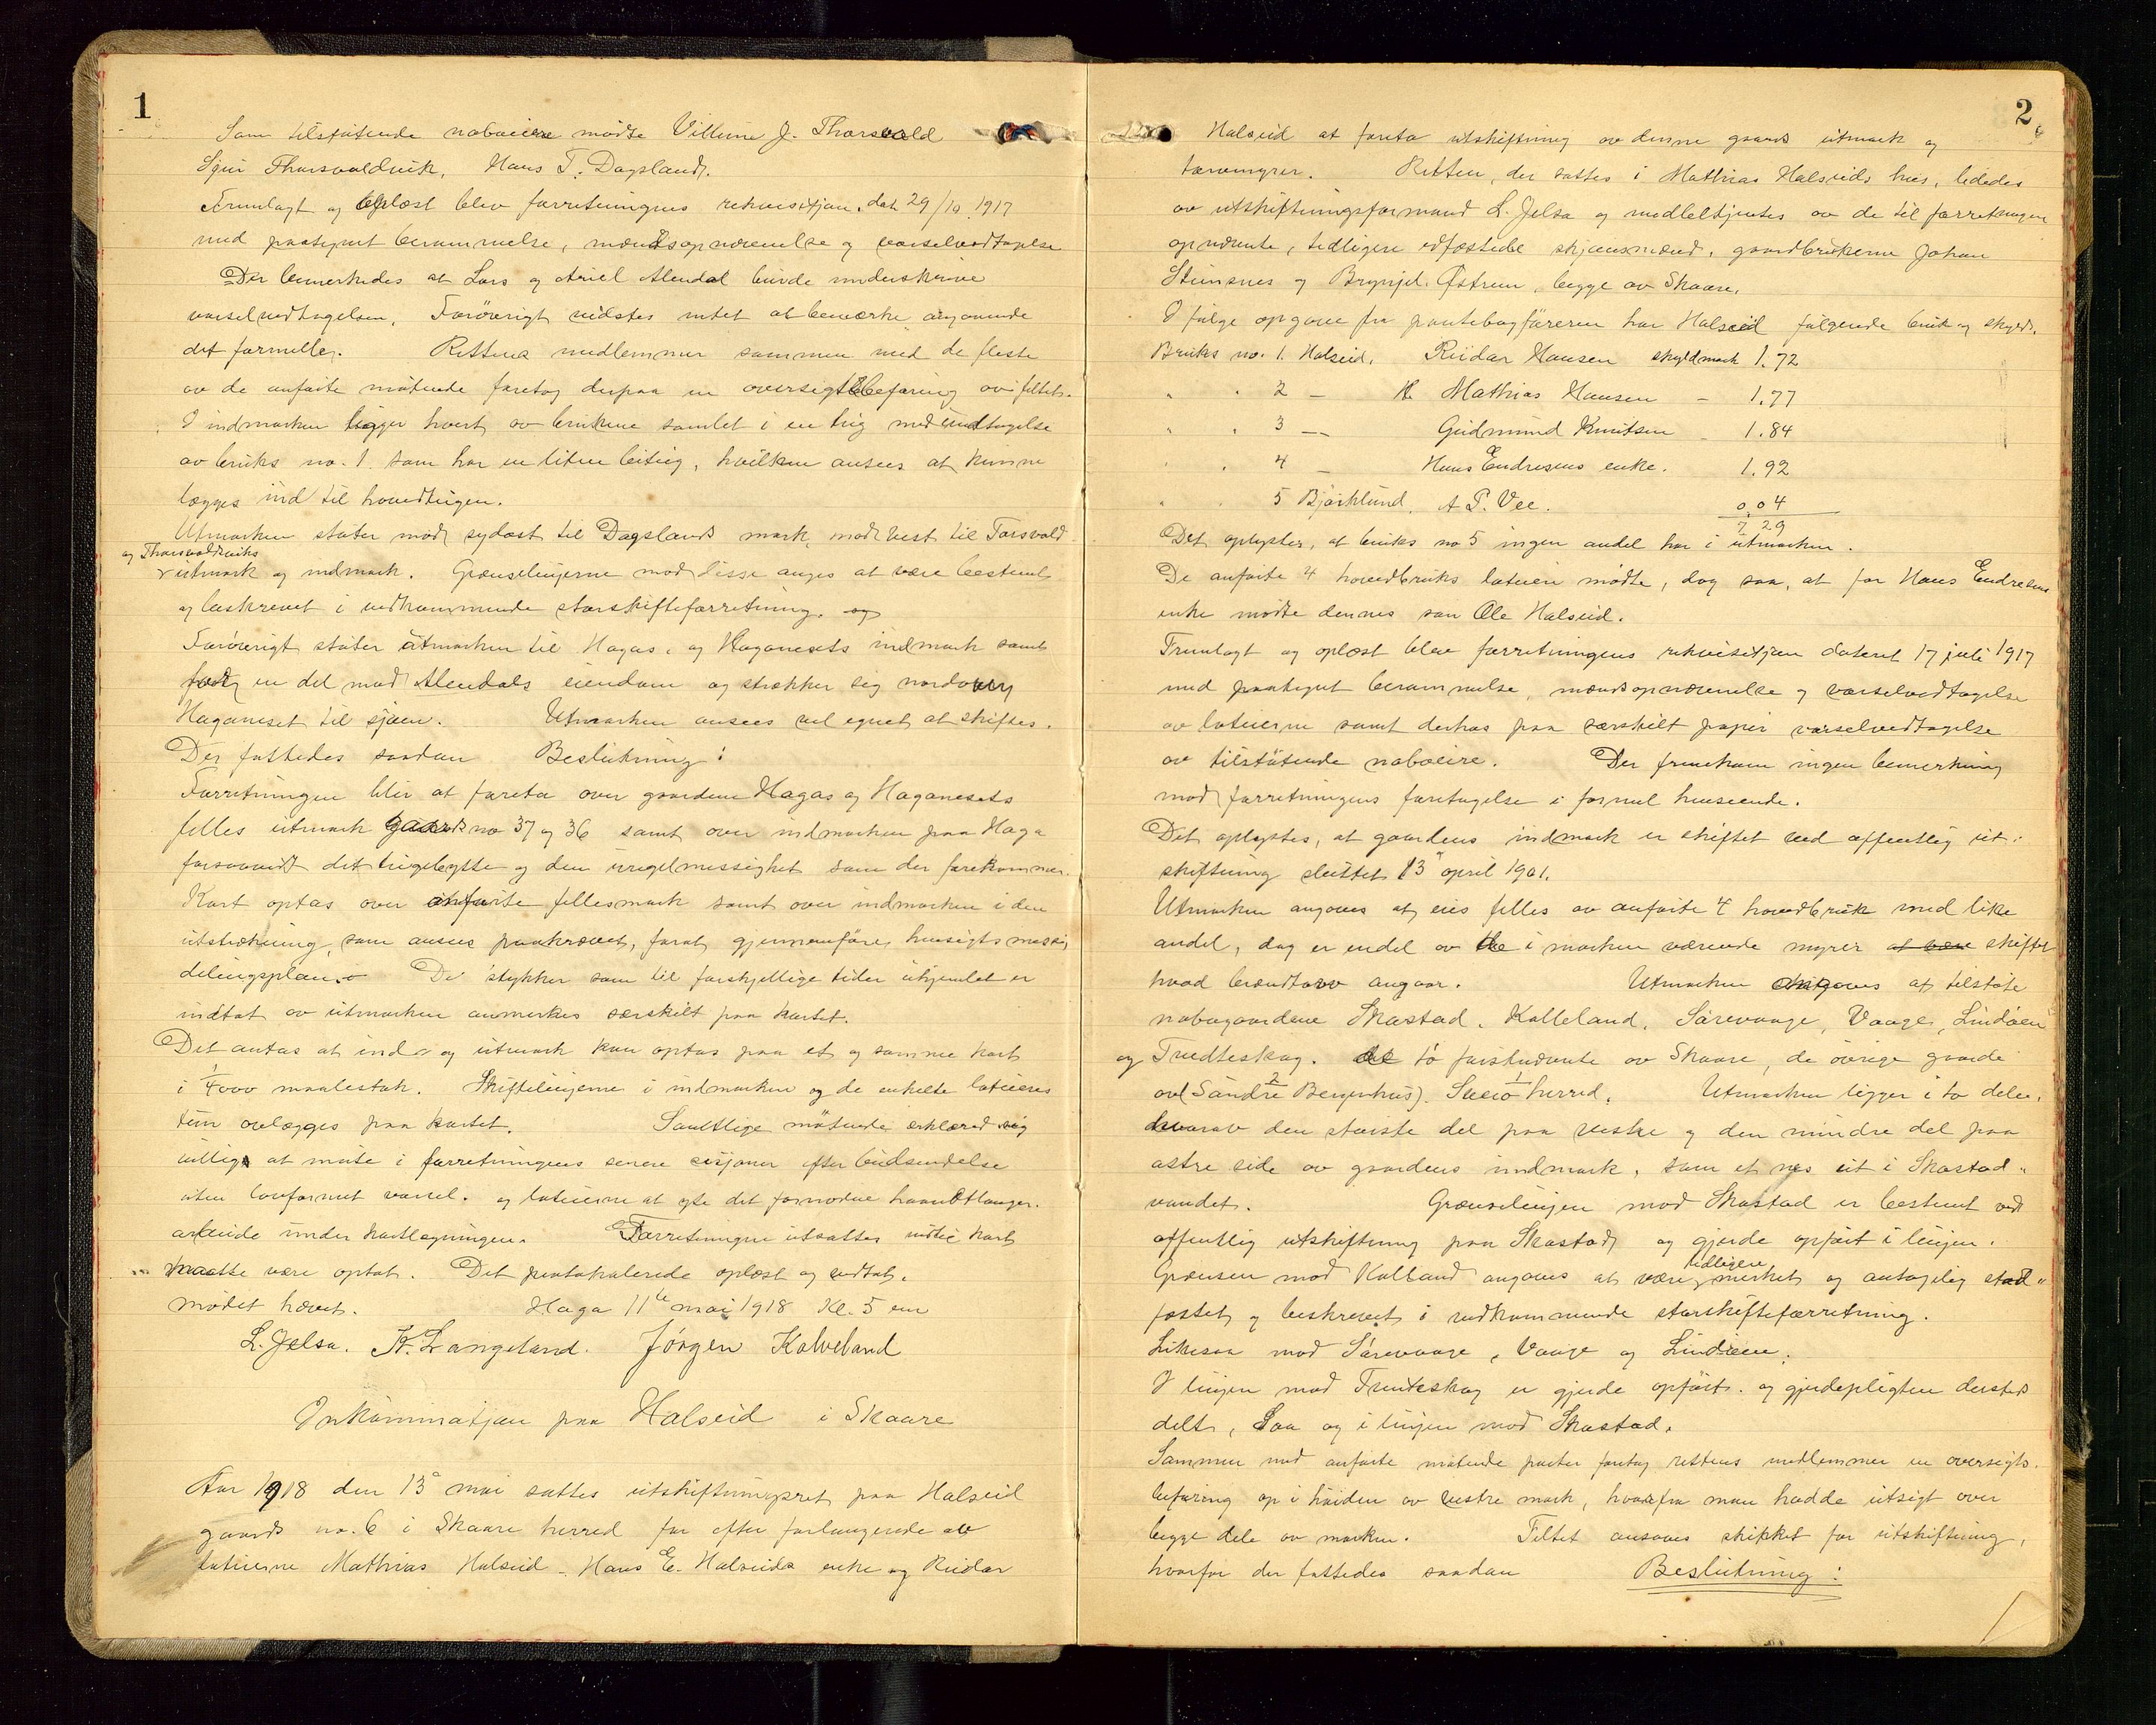 1
Som tilstøtende naboeiere mødte Villum J. Thorsvold
Sjur Thorsvoldvik, Hans T. Dagsland.
Fremlagt og oplæst blev forretningens rekvisisjon, dat 29/10 1917
med paategnet berammelse, mændsopnævnelse og varselvedtagelse
Der bemerkedes at Lars og Ariel Alendal burde underskrive
varselvedtagelsen. Forøvrigt vidstes intet at bemerke angaaende
det formelle. Rettens medlemmer sammen med de fleste
av de anførte møtende foretog derpaa en oversigtsbefaring av feltet.
I indmarken ligger hvert av brukene samlet i en teig med undtagelse
av bruks no. 1. som har en liten biteig, hvilken ansees at kunne
lægges ind til hovedteigen.
Utmarken støter mod sydøst til Dagslands mark, mod vest til Torsvold
og Thorsvoldviks
utmark og indmark. Grænselinjerne mod disse anges at være bestemt
og beskrevet i vedkommende storskifteforretning. og
Forøvrigt støter utmarken til Hagas, og Haganesets indmark samt
for en del mod Alendals eiendom og strækker sig nordover
Haganeset til sjøen. Utmarken ansees vel egnet at skiftes.
Der fattedes saadan Beslutning:
Forretningen blir at foreta over gaardene Hagas og Haganesets
felles utmark Gaards no 37 og 36 samt over indmarken paa Haga
forsaavidt det teigebytte og den uregelmessighet som der forekommer.
Kart optas over anførte fellesmark samt over indmarken i den
utstrækning, som ansees paakrævet, forat gjennemføre hensigtsmessig
delingsplan. De stykker som til forskjellige tider uhjemlet er
indtat av utmarken anmerkes særskilt paa kartet.
Det antas at ind- og utmark kan optas paa et og samme kart
i 1/4000 maalestok. Skiftelinjerne i indmarken og de enkelte lotteieres
tun avlægges paa kartet. Samtlige møtende erklæred sig
villig at møte i forretningens senere sesjoner efter budsendelse
uten lovformet varsel. og lotteierne at yte det fornødne haandtlanger-
arbeide under kartlægningen. Forretningen utsattes indtil kart
maatte være optat. Det protokolerede oplæst og vedtat.
mødet hævet. Haga 11te mai 1918 Kl. 5 em
L. Jelsa. K. Langeland. Jörgen Kalveland
Inkaminasjon paa Halseid i Skaare
Aar 1918 den 13de mai sattes utskiftningsret paa Halseid
gaards no. 6 i Skaare herred for efter forlangende av
lotteierne Mathias Halseid - Hans E. Halseids enke og Reidar
2
Halseid at foreta utskiftning av denne gaards utmark og
torvmyrer. Retten, der sattes i Mathias Halseids hus, lededes
av utskiftningsformand L. Jelsa og medbetjentes av de til forretningen
opnævnte, tidligere edfæstede skjønsmænd, gaardbrukerne Johan
Steinsnes og Brynjel. Østrem, begge av Skaare.
I følge opgave fra pantebogføreren har Halseid følgende bruk og skyld.
Bruks no. 1. Halseid. Reidar Hansen skyldmark 1.72
" " 2 — Mathias Hansen - 1.77
" " 3 — Gudmund Knutsen - 1.84
" " 4 — Hans Endresens enke. 1.92
" " 5 Bjørklund. A P. Vee. 0.04
7.29
Det oplystes, at bruks no 5 ingen andel har i utmarken.
De anførte 4 hovedbruks lotteiere mødte, dog saa, at for Hans Endresens
enke mødte dennes søn Ole Halseid.
Fremlagt og oplæst blev forretningens rekvisisjon dateret 17 juli 1917
med paategnet berammelse, mændsopnævnelse og varselvedtagelse
av lotteierne samt derhos paa særskilt papir varselvedtagelse
av tilstøtende naboeiere. Der fremkom ingen bemerkning
mod forretningens foretagelse i formel henseende.
Det oplystes, at gaardens indmark er skiftet ved offentlig ut-
skiftning sluttet 13de april 1901.
Utmarken angaves at eies felles av anførte 4 hovedbruk med like
andel, dog er endel av de i marken værende myrer at være skiftet
hvad brændtorv angaar. Utmarken angaves at tilstøte
nabogaardene Skastad, Kalleland, Sørevaage, Vaage, Lindøen
og Tredteskog. de to førstnævnte av Skaare, de øvrige gaarde
av (Søndre 2 Bergenhus). Sveio 1 herred. Utmarken ligger i to dele,
hvorav den største del paa vestre og den mindre del paa
østre side av gaardens indmark, som et nes ut i Skastad-
vandet. Grænselinjen mod Skastad er bestemt ved
offentlig utskiftning paa Skastad og gjerde opført i linjen.
tidligere
Grænsen mod Kalland angaves at være merket og antagelig stad-
fæstet og beskrevet i vedkommende storskifteforretning.
Likesaa mod Sørevaage, Vaage og Lindøen.
I linjen mod Tredteskog er gjerde opført. og gjerdepligten dersteds
delt, saa og i linjen mod Skastad.
Sammen med anførte møtende parter foretog rettens medlemmer en oversigts-
befaring op i høiden av vestre mark, hvorfra man hadde utsigt over
begge dele av marken. Feltet ansaaes skikket for utskiftning,
hvorfor der fattedes saadan Beslutning: